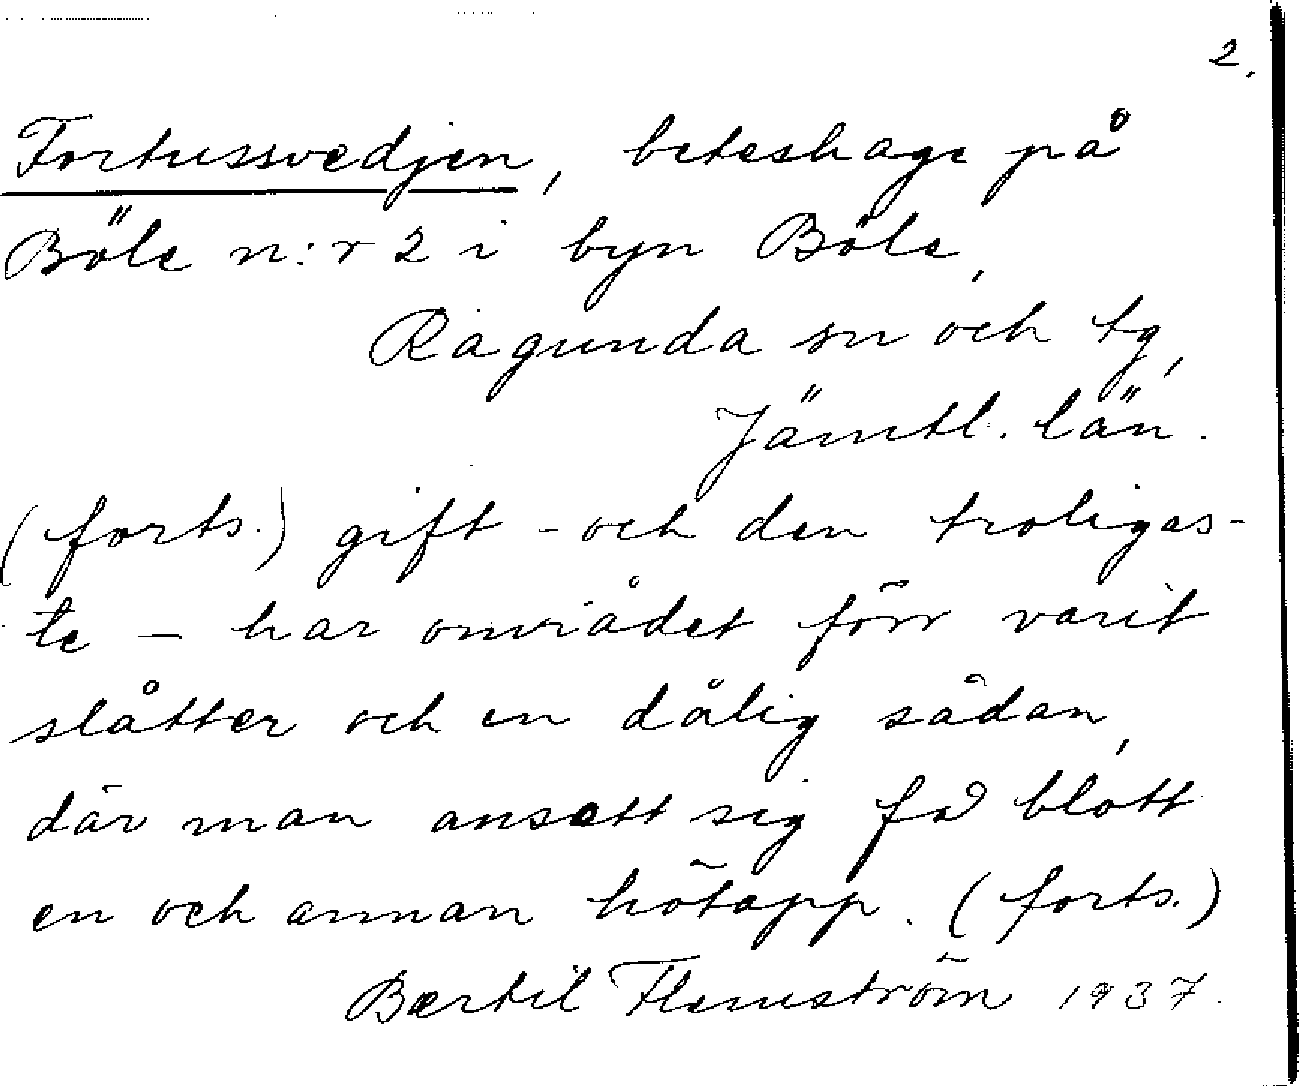 2.
Fortussvedjen, beteshage på
Böle n:r 2 i byn Böle,
Ragunda sn och tg,
Jämtl. län.
(forts.) gift - och den troligas-
te - har området förr varit
slåtter och en dålig sådan,
där man ansett sig få blott
en och annan hötapp. (forts.)
Bertil Flemström 1937.